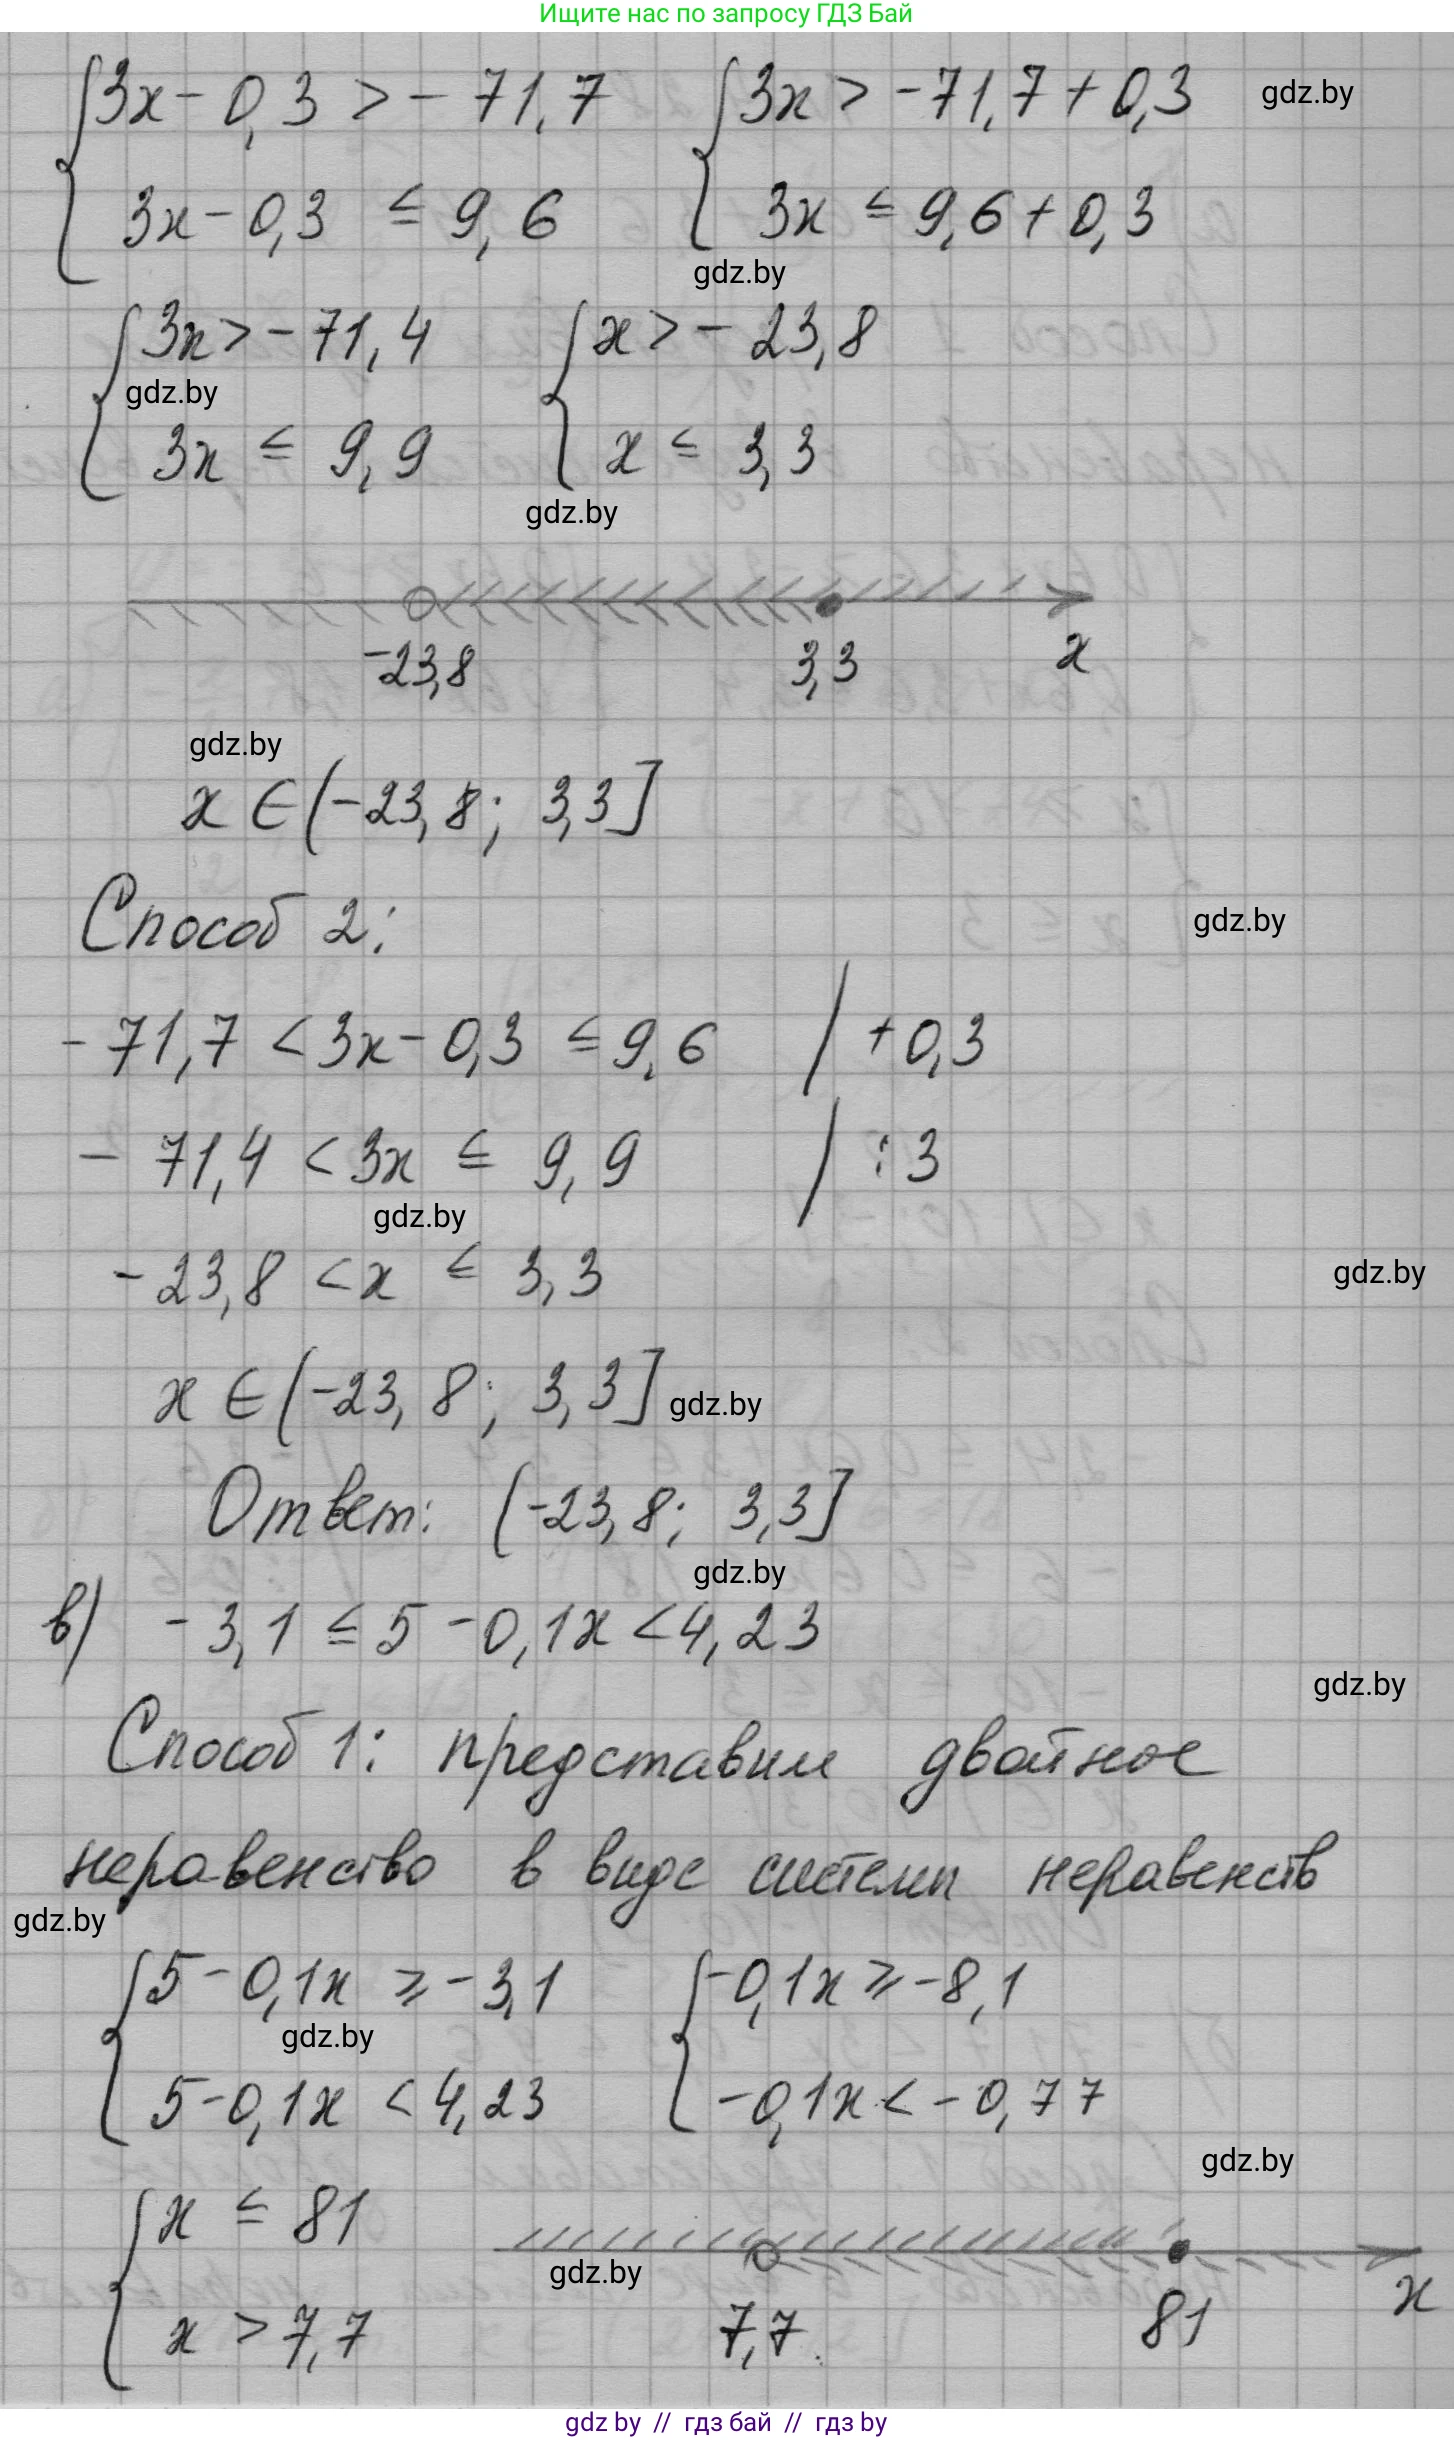 Ищите нас по запросу ГДЗ Бай
3x - 0,3 > - 71,7 3x > -71,7 + 0,3 gdz.by
3x - 0,3 ≤ 9,6 3x ≤ 9,6 + 0,3
gdz.by
3x > - 71,4 x > - 23,8
gdz.by
3x ≤ 9,9 x ≤ 3,3
gdz.by
-23,8 3,3 x
gdz.by
x ∈ (-23,8; 3,3]
Способ 2: gdz.by
- 71,7 < 3x - 0,3 ≤ 9,6 / + 0,3
- 71,4 < 3x ≤ 9,9 / : 3
gdz.by
- 23,8 < x ≤ 3,3 gdz.by
x ∈ (-23,8; 3,3] gdz.by
Ответ: (-23,8; 3,3]
gdz.by
в) - 3,1 ≤ 5 - 0,1x < 4,23
gdz.by
Способ 1: представим двойное
неравенство в виде системы неравенств
gdz.by
5 - 0,1x ≥ -3,1 -0,1x ≥ -8,1
gdz.by
5 - 0,1x < 4,23 -0,1x < -0,77
gdz.by
x ≤ 81
gdz.by
x > 7,7 7,7 81 x
gdz by // гдз бай // гдз by